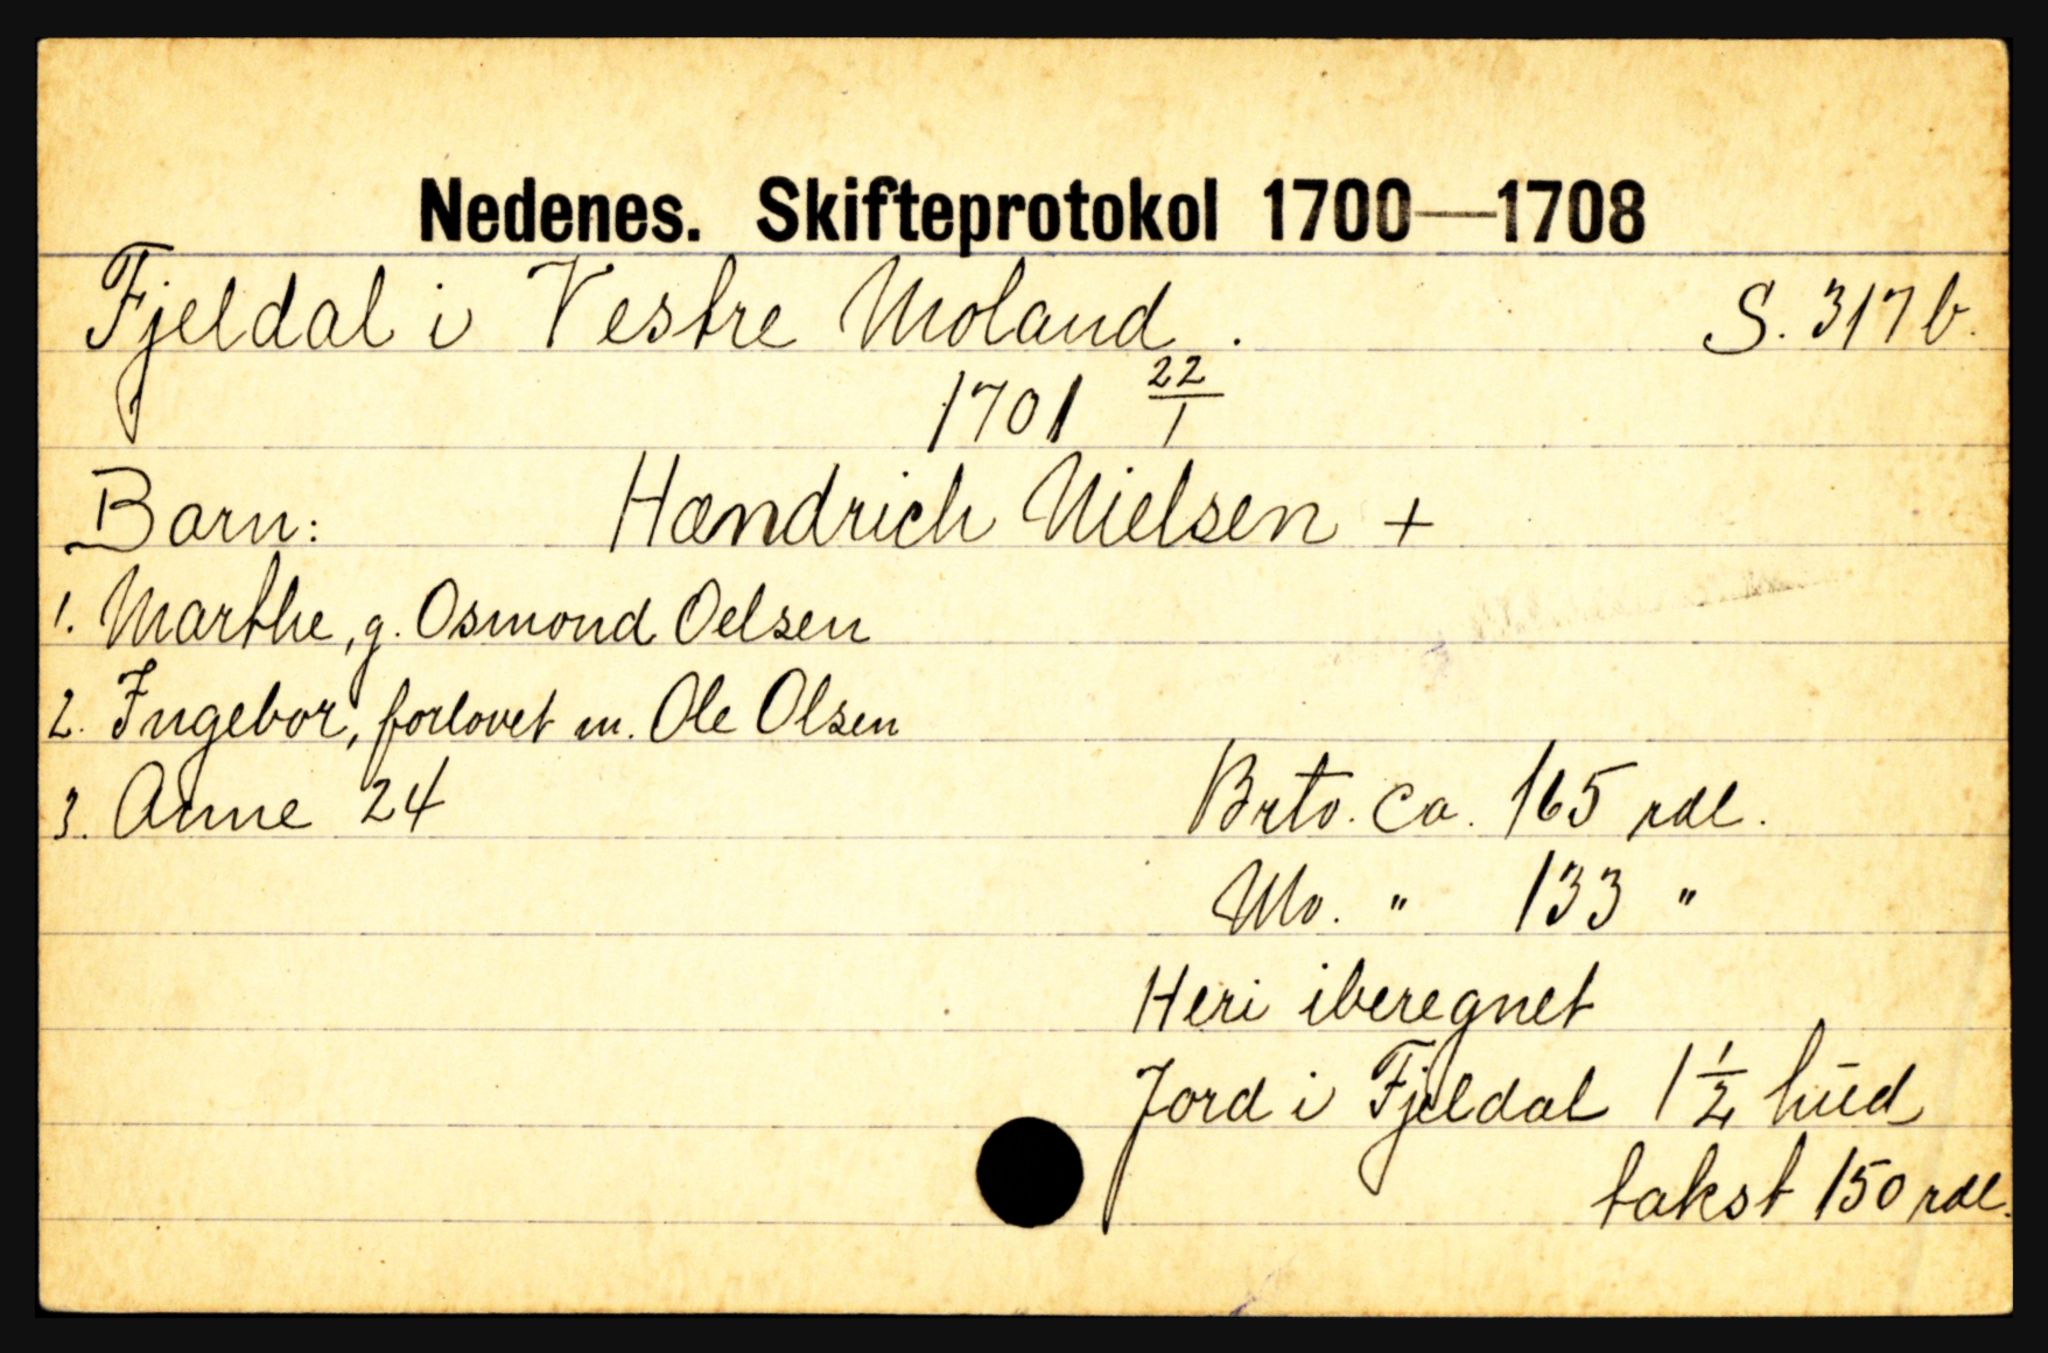 Nedenes. Skifteprotokol 1700—1708
Fjeldal i Vestre Moland. S. 317 b.
1701 22/1
Barn: Hændrich Nielsen +
1. Marthe, g. Osmond Oelsen
2. Ingebor, forlovet m. Ole Olsen
3. Anne 24 Brto. ca. 165 rdl.
No. " 133 "
Heri iberegnet
Jord i Fjeldal 1 1/2 hud
takst 150 rdl.